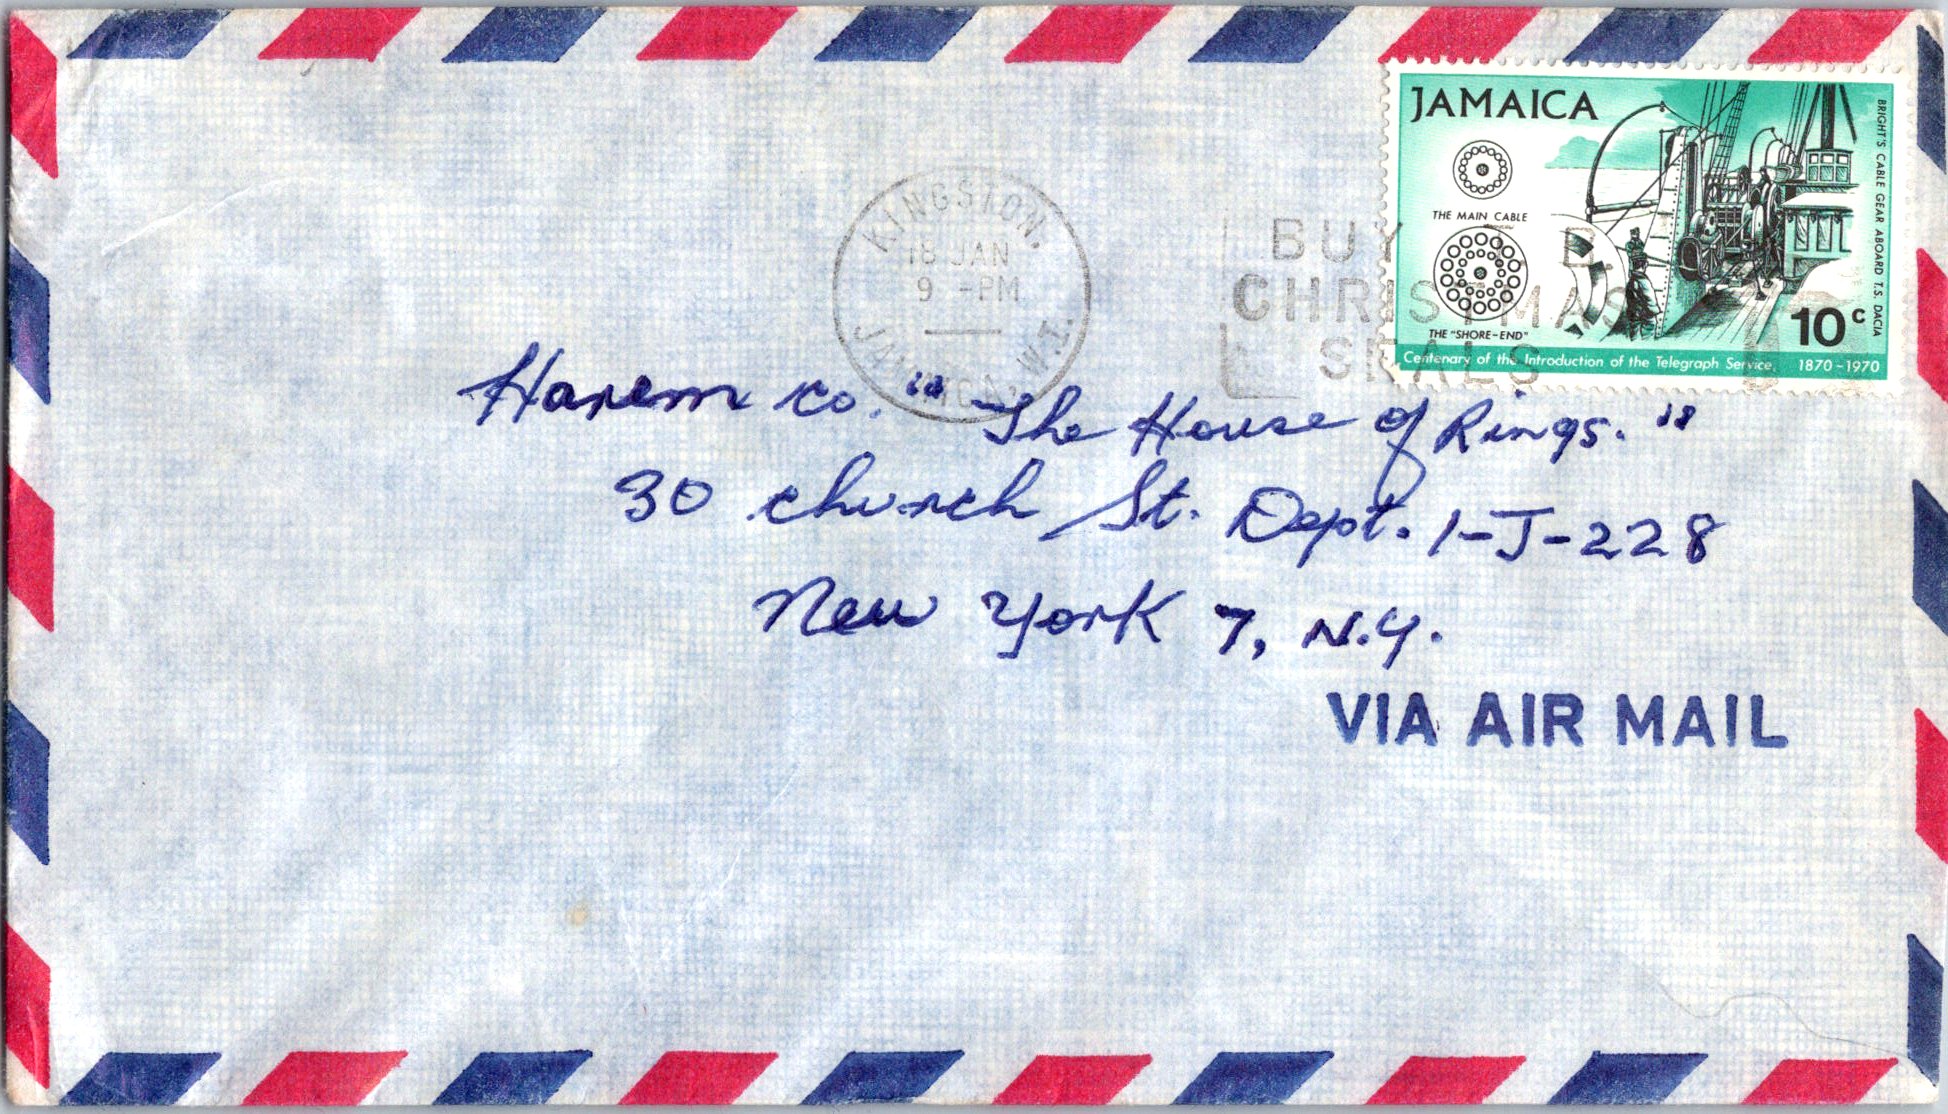 JAMAICA
BRIGHT'S CABLE GEAR ABOARD T.S. DACIA
THE MAIN CABLE
THE "SHORE-END"
10c
Centenary of the Introduction of the Telegraph Service. 1870-1970
KINGSTON.
18 JAN
9 -PM
JAMAICA, W.I.
BUY T.B.
CHRISTMAS
SEALS
Harem Co. "" The House of Rings. "
30 Church St. Dept. 1-J-228
New York 7, N.Y.
VIA AIR MAIL